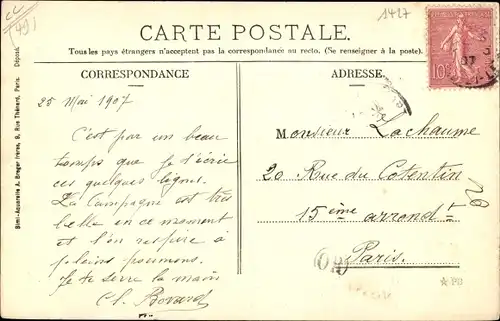 1427
491
CARTE POSTALE.
Tous les pays étrangers n'acceptent pas la correspondance au recto. (Se renseigner à la poste).
CORRESPONDANCE
ADRESSE.
Simi-Aquarelle A. Breger frères, 9, Rue Thénard, Paris. Déposé.
25 Mai 1907
C'est par un beau
temps que je t'écris
ces quelques lignes.
La Campagne est très
belle en ce moment
et l'on respire à
pleins poumons.
Je te serre la main
Ch.
10
Monsieur Lachaume
20 Rue du Cotentin
15ème arrondt
Paris.